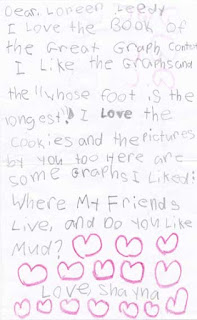 Dear. Loneen Leedy
I Love the Book of
the Great Graph Contest
I Like the Graphs and
the "whose foot is the
longest"! I Love the
Cookies and the pictures
by you too Here are
some Graphs I Liked:
Where My Friends
Live, and Do You Like
Mud?
Love, Shayna